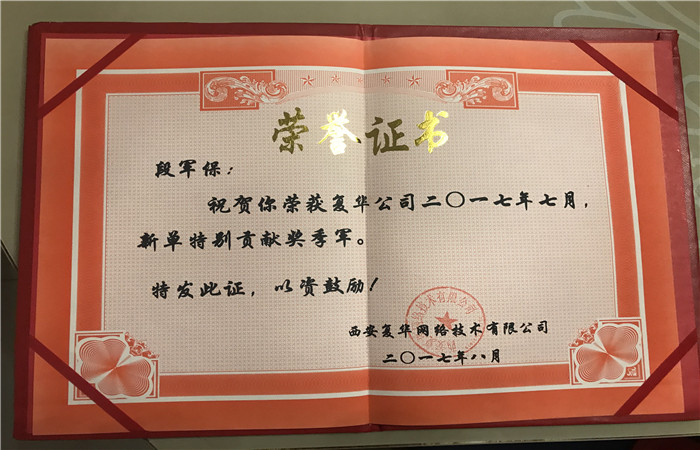 荣誉证书
段军保：
祝贺你荣获复华公司二〇一七年七月，
新单特别贡献奖季军。
特发此证，以资鼓励！
西安复华网络技术有限公司
二〇一七年八月